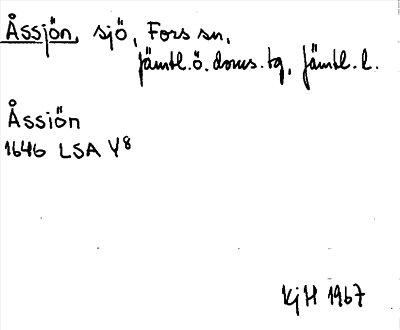 Åssjön, sjö, Fors sn,
Jämtl.ö. doms.tg, Jämtl. l.
Åssiön
1646 LSA Y8
KjH 1967